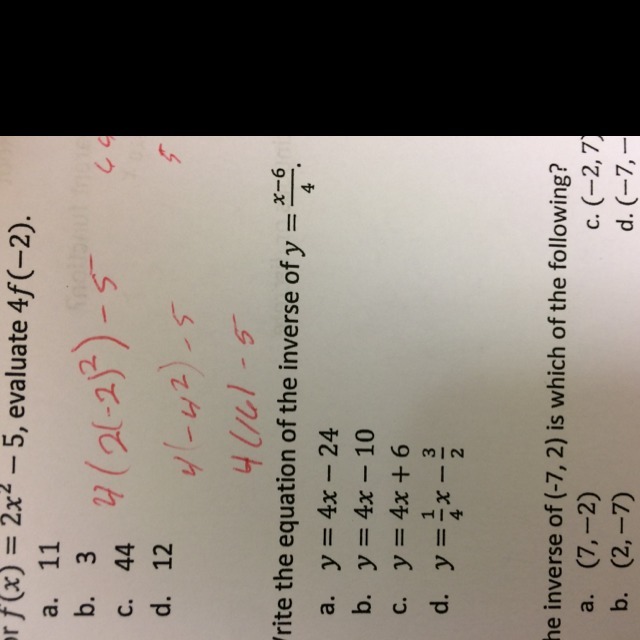 r f(x) = 2x² − 5, evaluate 4f(−2).
a. 11
b. 3
c. 44
d. 12
4(2(-2)²) - 5
4(-4²) - 5
4(16) - 5
rite the equation of the inverse of y = (x−6)/4.
a. y = 4x − 24
b. y = 4x − 10
c. y = 4x + 6
d. y = 1/4 x − 3/2
he inverse of (-7, 2) is which of the following?
a. (7, −2)
b. (2, −7)
c. (−2, 7)
d. (−7, −